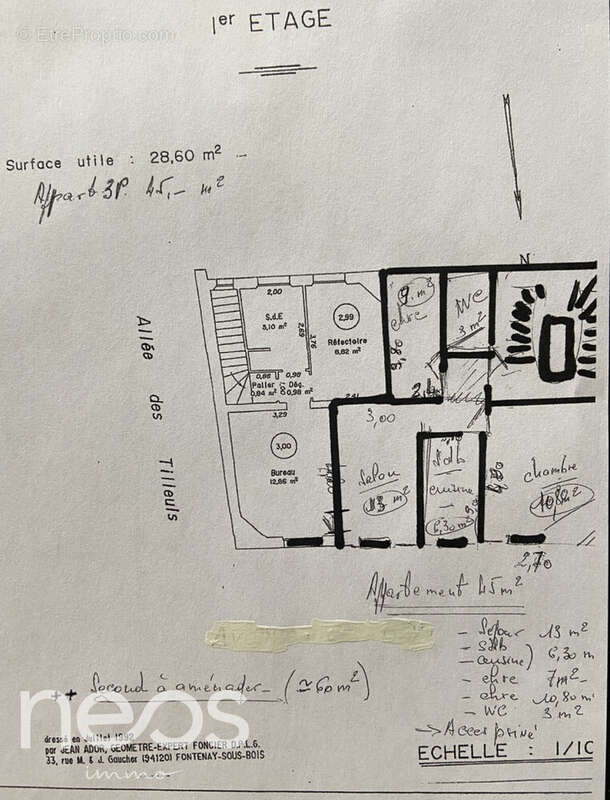 © EtreProprio.com
1er ETAGE
Surface utile : 28,60 m²
Appart 3P. 45,- m²
N
Allée des Tilleuls
2,00
S.d.E
5,10 m²
2,69
3,76
2,99
Réfectoire
8,82 m²
9. m²
chre
WC
3 m²
0,86 0,98
Palier Dég.
0,84 m² 0,98 m²
3,29
3,00
Bureau
12,86 m²
3,00
Salon
13 m²
Sdb
cuisine
6,30 m²
chambre
10,80 m²
2,70
Appartement 45 m²
- Sejour 13 m²
- Sdb
- cuisine) 6,30 m
- chre 7 m²
- chre 10,80 m²
- WC 3 m²
→ Acces privé
++ Second à aménager - (≃ 60 m²)
neos
immo
dressé en Juillet 1992
par JEAN ADOR, GEOMETRE-EXPERT FONCIER D.P.L.G.
33, rue M. & J. Gaucher (94120) FONTENAY-SOUS-BOIS
ECHELLE : 1/1C